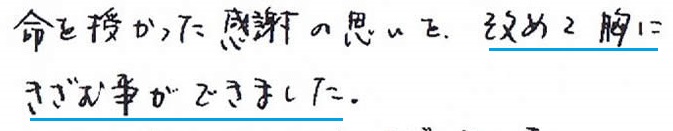 命を授かった感謝の思いを、改めて胸に
きざむ事ができました。